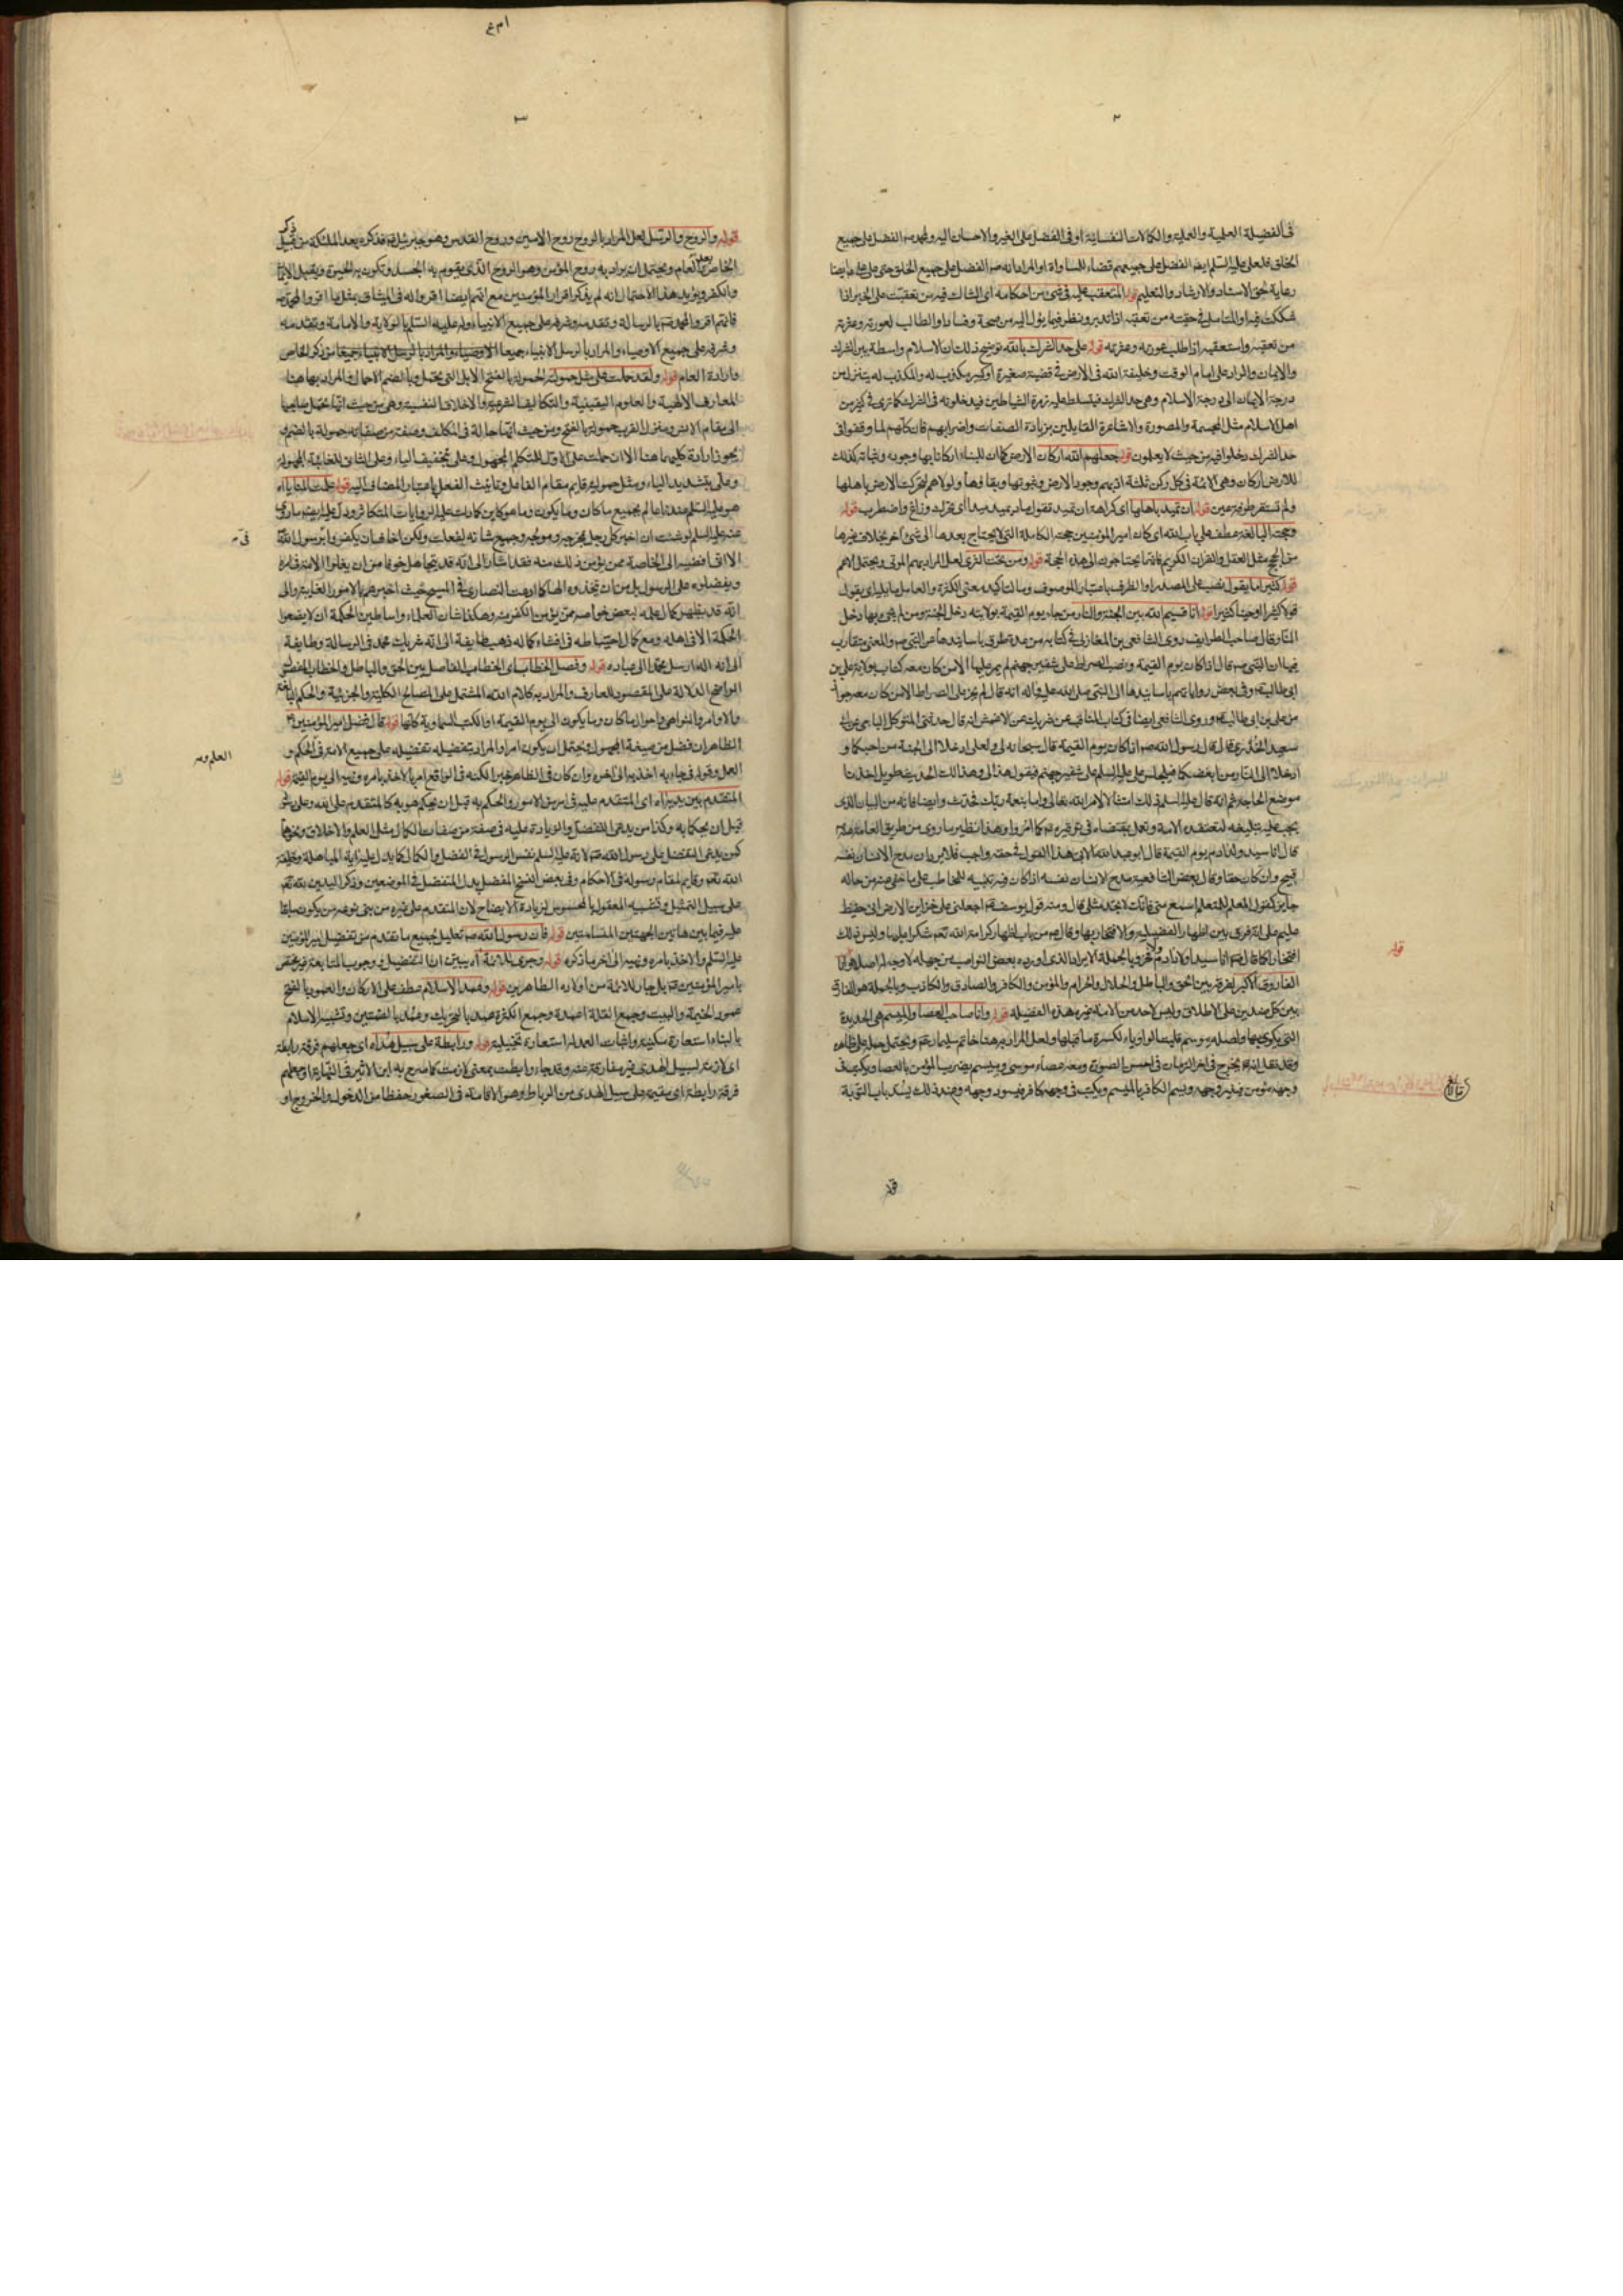 ٢
فى الفضيلة العلمية والعملية والكمالات النفسانية او فى الفضل على الغير والاحسان اليه ولمحمد ص الفضل على جميع
الخلق فلعلى عليه السلم ايضا الفضل على جميعهم قضاء للمساواة او المراد انه ص الفضل على جميع الخلق حتى على على ايضا
رعاية لحق الاستاد والارشاد والتعليم قوله المتعقب عليه فى شئ من احكامه اى الشاك فيه من تعقبت على الخبر اذا
شككت فيه او المتامل فى حقيته من تعقبه اذا تدبر ونظر فيما يؤل اليه من صحة وفساد او الطالب لعورته وعثرته
من تعقبه واستعقبه اذا طلب عورته وعثرته قوله على حد الشرك بالله توضيح ذلك ان الاسلام واسطة بين الشرك
والايمان والراد على امام الوقت وخليفة الله فى الارض فى قضية صغيرة او كبيرة مكذب له والمكذب له يتنزل من
درجة الايمان الى درجة الاسلام وهى حد الشرك فيتسلط عليه زمرة الشياطين فيدخلونه فى الشرك كما ترى فى كثير من
اهل الاسلام مثل المجسمة والمصورة والاشاعرة القايلين بزيادة الصفات واضرابهم فان كلهم لما وقفوا فى
حد الشرك دخلوا فيه من حيث لا يعلمون قوله جعلهم الله اركان الارض كما ان للبناء اركانا بها وجوده وثباته كذلك
للارض اركان وهى الائمة فى كل ركن ثلثة اذ بهم وجود الارض وثبوتها وبقاؤها ولولاهم لتحركت الارض باهلها
ولم تستقر طرفة عين قوله ان تميد باهلها اى كراهة ان تميد تقول ماد يميد ميدا اى تحرك وزاغ واضطرب قوله
وحجته البالغة عطف على باب الله اى كان امير المؤمنين حجته الكاملة التى لا يحتاج بعدها الى شئ اخر بخلاف غيرها
من الحجج مثل العقل والقران الكريم فانهما يحتاجون الى هذه الحجة قوله ومن تحت الثرى لعل المراد بهم الموتى ويحتمل الاعم
قوله كثيرا ما يقول نصب على المصدر او الظرف باعتبار الموصوف وما لتاكيد معنى الكثرة والعامل ما يليه اى يقول
قولا كثيرا او حينا كثيرا قوله انا قسيم الله بين الجنة والنار من جاء يوم القيمة بولايته دخل الجنة ومن لم يجئ بها دخل
النار قال صاحب الطرايف روى الشافعى بن المغازلى فى كتابه من عدة طرق باسانيدها عن النبى ص والمعنى متقارب
فيها ان النبى ص قال اذا كان يوم القيمة ونصب الصراط على شفير جهنم لم يمر عليها الا من كان معه كتاب بولاية على بن
ابى طالب ع وفى بعض رواياتهم باسانيدها الى النبى صلى الله عليه واله انه قال لم يجز على الصراط الا من كان معه جواز
من على بن ابى طالب ع وروى الشافعى ايضا فى كتاب المناقب عن شريك عن الاعمش انه قال حدثنى المتوكل الناجى عن ابى
سعيد الخدرى قال قال رسول الله ص اذا كان يوم القيمة قال سبحانه لى ولعلى ادخلا الى الجنة من احبكما و
ادخلا الى النار من ابغضكما فيجلس على عليه السلم على شفير جهنم فيقول هذا لى وهذا لك الحديث طويل اخذنا
موضع الحاجة ثم انه قال عليه السلم ذلك امتثالا لامر الله تعالى واما بنعمة ربك فحدث وايضا فانه من البيان الذى
يجب عليه تبليغه لتعتقده الامة وتعمل بمقتضاه فى توقيره
قال انا سيد ولد ادم يوم القيمة قال ابو عبد الله الابى هذا القول فى حقه واجب فلا يرد ان مدح الانسان نفسه
قبيح وان كان حقا وقال بعض الشافعية مدح الانسان نفسه اذا كان فيه تنبيه للمخاطب على ما خفى عنه من حاله
جايز كقول المعلم للمتعلم اسمع منى فانك لا تجد مثلى قال ومنه قول يوسف ع اجعلنى على خزاين الارض انى حفيظ
عليم على انه فرق بين اظهار الفضيلة والافتخار بها وقال ص من باب اظهار كرامة الله تعم شكرا عليها وليس ذلك
افتخارا كما قال ص انا سيد اولاد ادم ولا فخر وبالجملة الايراد الذى اورده بعض النواصب من جهله لا وجه له اصلا قوله وانا
الفاروق الاكبر لفرقه بين الحق والباطل والحلال والحرام والمؤمن والكافر والصادق والكاذب وبالجملة هو الفارق
بين كل ضدين على الاطلاق وليس لاحد من الامة غيره هذه الفضيلة قوله وانا صاحب العصا والميسم هى الحديدة
التى يكوى بها واصله موسم قلبت الواو ياء لكسرة ما قبلها ولعل المراد به هنا خاتم سليمان ع ويحتمل حمله على ظاهره
وقد نقل انه ع يخرج فى اخر الزمان فى احسن الصورة ومعه عصاء موسى وميسم يضرب المؤمن بالعصا ويكتب فى
وجهه مؤمن فينير وجهه ويسم الكافر بالميسم ويكتب فى وجهه كافر فيسود وجهه وعند ذلك يسد باب التوبة
قوله
٣
قوله والروح والرسل لعل المراد بالروح روح الامين وروح القدس وهو جبرئيل ع فذكره بعد الملئكة من قبيل ذكر
الخاص بعد العام ويحتمل ان يراد به روح المؤمن وهو الروح الذى يقوم به الجسد وتكون به الحيوة ويقبل الايمان
والكفر ويؤيد هذا الاحتمال انه لم يذكر اقرار المؤمنين مع انهم ايضا اقروا له فى الميثاق بمثل ما اقروا لمحمد ص
فانهم اقروا لمحمد ص بالرسالة وتقدمه وشرفه على جميع الانبياء ولعلى عليه السلم بالولاية والامامة وتقدمه
وشرفه على جميع الاوصياء والمراد بالرسل الانبياء جميعا من ذكر الخاص
وارادة العام قوله ولقد حملت على مثل حمولته الحمولة بالفتح الابل التى تحمل وبالضم الاحمال والمراد بها هنا
المعارف الالهية والعلوم اليقينية والتكاليف الشرعية والاخلاق النفسية وهى من حيث انها تحمل صاحبها
الى مقام الانس ومنزل القرب حمولة بالفتح ومن حيث انها حالة فى المكلف وصفة من صفاته حمولة بالضم و
يجوز ارادة كليهما هنا الا ان حملت على الاول للمتكلم المجهول وعلى تخفيف الياء وعلى الثانى للغائبة المجهولة
وعلى بتشديد الياء ومثل حمولته قايم مقام الفاعل وتانيث الفعل باعتبار المضاف اليه قوله علمت المنايا اه
هو عليه السلم عندنا عالم بجميع ما كان وما يكون وما هو كاين كما دلت عليه الروايات المتكاثرة ودل عليه ايضا ما روى
عنه عليه السلم لو شئت ان اخبر كل رجل بمخرجه ومولجه وجميع شانه لفعلت ولكن اخاف ان يكفروا برسول الله
الا انى افضيه الى الخاصة ممن يؤمن ذلك منه فقد اشار الى انه قد يتجاهل خوفا من ان يغلوا الامة فى امره
ويفضلوه على الرسول بل من ان يتخذوه الها كما ادعت النصارى فى المسيح حيث اخبرهم بالامور الغايبة والى
انه قد يظهر كمال علمه لبعض خواصه ممن يؤمن الكفر منه وهكذا شان العلماء واساطين الحكمة ان لا يضعوا
الحكمة الا فى اهله ومع كمال احتياطه فى افشاء كماله ذهب طايفة الى انه شريك محمد فى الرسالة وطايفة
الى انه اله ارسل محمدا الى عباده قوله وفصل الخطاب اى الخطاب الفاصل بين الحق والباطل والخطاب المفصول
الواضح الدلالة على المقصود للعارف والمراد به كلام الله المشتمل على المصالح الكلية والجزئية والحكم البالغة
والاوامر والنواهى واحوال ما كان وما يكون الى يوم القيمة او الكتب السماوية كلها قوله قال فضل امير المؤمنين ع
الظاهر ان فضل من صيغة المجهول ويحتمل ان يكون امرا والمراد بتفضيله تفضيله على جميع الامة فى الحكم و
العمل وقوله فما جاء به اخذ به الى اخره وان كان فى الظاهر خبرا لكنه فى الواقع امر بالاخذ بامره ونهيه الى يوم القيمة قوله
المتقدم بين يديه اه اى المتقدم عليه فى امر من الامور والحكم به قبل ان يحكم هو به كالمتقدم على الله وعلى رسوله
قبل ان يحكما به وكذا من يدعى التفضل والزيادة عليه فى صفة من صفات الكمال مثل العلم والاخلاق ونحوها
كمن يدعى التفضل على رسول الله ص لانه عليه السلم نفس الرسول فى الفضل والكمال كما يدل عليه اية المباهلة وخليفة
الله تعم وقايم مقام رسوله فى الاحكام وفى بعض النسخ المفضل بدل المتفضل فى الموضعين وذكر اليدين لله تعم
على سبيل التمثيل وتشبيه المعقول بالمحسوس لزيادة الايضاح لان المتقدم على غيره من بنى نوعه من يكون سابقا
عليه فيما بين هاتين الجهتين المتسامتتين قوله فان رسول الله ص تعليل لجميع ما تقدم من تفضيل امير المؤمنين
عليه السلم والاخذ بامره ونهيه الى اخر ما ذكره قوله وجرى للائمة اه يبين ان التفضيل ووجوب المتابعة غير مختص
بامير المؤمنين ع بل جار للائمة من اولاده الطاهرين قوله وعمد الاسلام عطف على الاركان والعمود بالفتح
عمود الخيمة والبيت وجمع القلة اعمدة وجمع الكثرة عمد بالتحريك وعمد بالضمتين وتشبيه الاسلام
بالبناء استعارة مكنية واثبات العمد له استعارة تخييلية قوله ورابطة على سبيل هداه اى جعلهم فرقة رابطة
اى لازمة لسبيل الهدى غير مفارقة منه وقد جاء رابطت بمعنى لازمت كما صرح به ابن الاثير فى النهاية او جعلهم
فرقة رابطة اى مقيمة على سبيل الهدى من الرباط وهو الاقامة فى الصغور حفظا من الدخول والخروج او
العلم وم